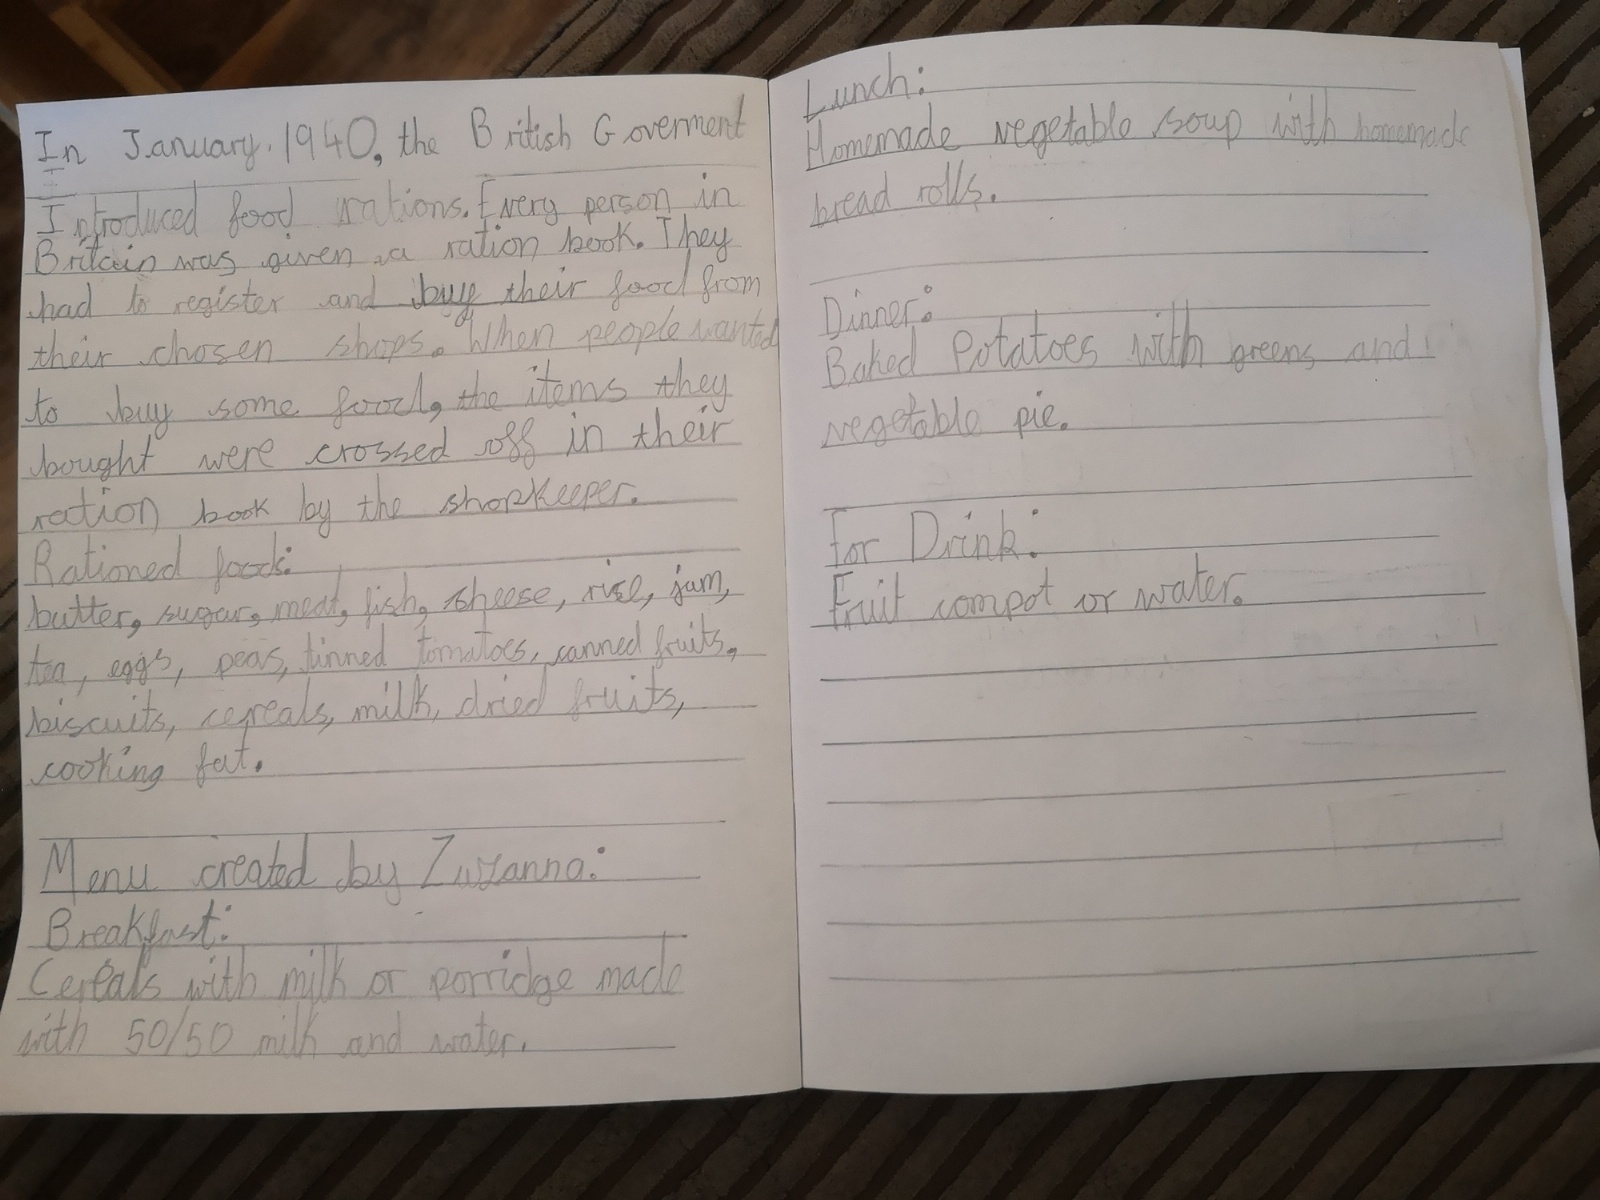 In January. 1940, the British Goverment
Introduced food rations. Every person in
Britain was given a ration book. They
had to register and buy their food from
their chosen shops. When people wanted
to buy some food, the items they
bought were crossed off in their
ration book by the shopkeeper.
Rationed foods:
butter, sugar, meat, fish, cheese, rise, jam,
tea, eggs, peas, tinned tomatoes, canned fruits,
biscuits, cereals, milk, dried fruits,
cooking fat.
Menu created by Zuzanna:
Breakfast:
Cereals with milk or porridge made
with 50/50 milk and water.
Lunch:
Homemade vegetable soup with homemade
bread rolls.
Dinner:
Baked Potatoes with greens and
vegetable pie.
For Drink:
Fruit compot or water.